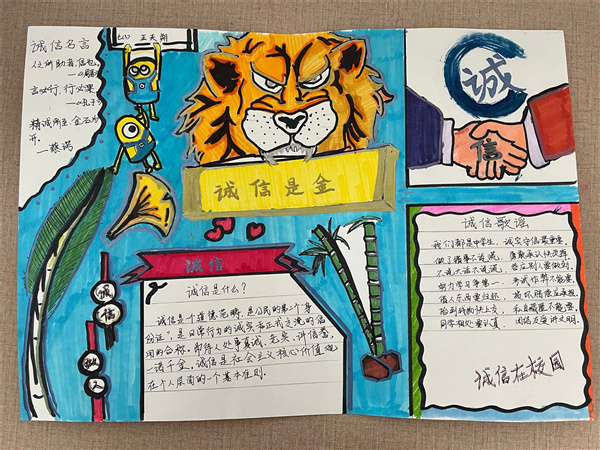 诚信名言
人之所助者,信也。
—《周易》
言必行,行必果
—《孔子》
精诚所至,金石为
开。
—蔡锷
王天朔
诚
信
诚信是金
诚信
诚信是什么?
诚信是个道德范畴,是公民的第二个身
份证,是日常行为的诚实和正式交流的信
用的合称。即待人处事真诚、老实、讲信誉,
一诺千金。诚信是社会主义核心价值观
在个人层面的一个基本准则。
诚
信
做
人
诚信歌谣
我们都是中学生,诚实守信最重要,
做了错事不逃避,勇敢承认快改善,
不说大话不说谎,答应别人要做到,
努力学习争第一,考试作弊不能要,
借人东西要归还,损坏赔偿应承担,
拾到钱物快上交,私自藏匿不能要,
同学相处要认真,团结友爱讲文明。
诚信在校园